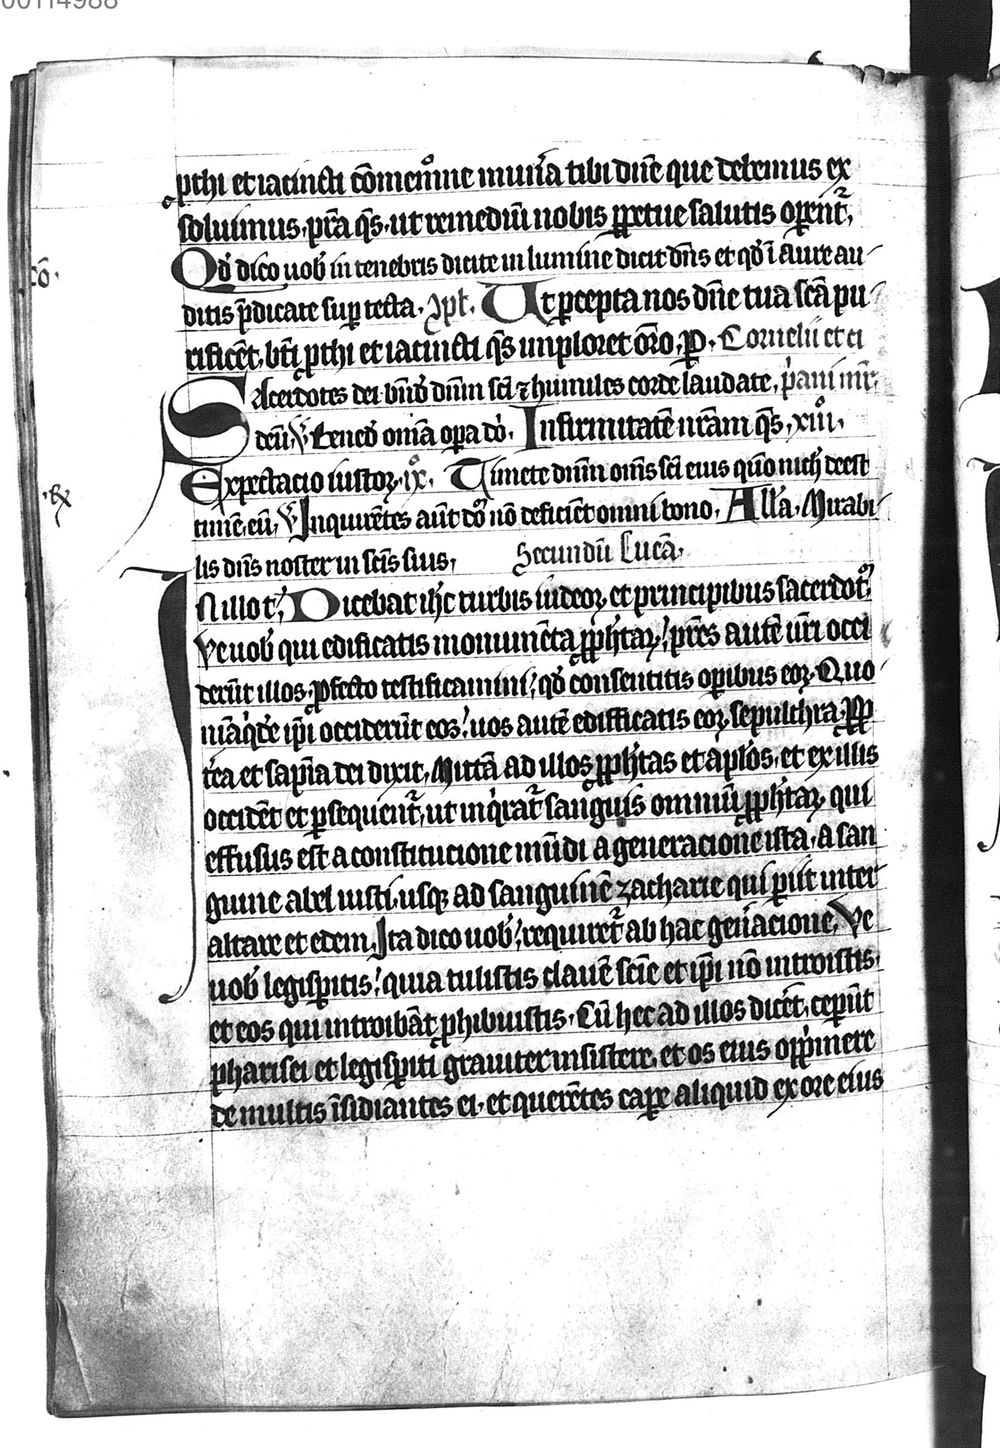 00114988
pthi et iacincti c̄omem̊ne mun̄a tibi dn̄e que debemus ex
soluimus, pr̄a qs̄, ut remediū nobis ꝑpetue salutis oꝑent᷑,
Qd̓ dico uob̓ in tenebris dicite in lumine dicit dn̄s et qd̓ ī aure au
cō.
ditis p̄dicate suꝑ tecta. 9pl. Ut ꝑcepta nos dn̄e tua sc̄a pu
rificēt, bt̄i ꝓthi et iacincti qs̄ imploret or̄o, ꝑ. Cornelii et ci
Sacerdotes dei bn̄d̓ dn̄m sc̄i ⁊ humiles corde laudate, p̓ani mr̄.
deū, V̄ Bened̓ om̄ia oꝑa do̓. Infirmitatē nr̄am qs̄, xiiij̊.
Expectacio iustoꝝ, ix̊. Timete dn̄m om̄s sc̄i eius qm̊ nich̓ deest
.Rx
timē. eū, V̄ Inquirētes aūt do᷑ nō deficiēt omni bono, All̄a, Mirabi
lis dn̄s noster in sc̄is suis, Secundū Lucā,
In illo t᷑, Dicebat ih̄c turbis iudeoꝝ et principibus sacerdot᷑,
Ve uob̓ qui edificatis monumēta ꝓph̄taꝝ, pr̄es autē ur̄i occi
derūt illos, ꝓfecto testificamini, qd̓ consentitis oꝑibus eoꝝ. Quo
niā q̓dē ip̄i occiderūt eos, uos autē edifficatis eoꝝ sepulchra, ꝓp
t̄ea et sapīa dei dixit, Mittā ad illos ꝓph̄tas et apl̓os, et ex illis
occidēt et ꝑsequent᷑, ut inq̓rat᷑ sanguis omniū ꝓph̄taꝝ, qui
effusus est a constitucione mūdi a generacione ista, a san
guine abel iusti, usqꝫ ad sanguinē zacharie qui ꝑiit inter
altare et edem, Ita dico uob̓, requiret᷑ ab hac gen̄acione, Ve
uob̓ legisꝑitis, quia tulistis clauē scīe et ip̄i nō introistis,
et eos qui introibāt ꝓhibuistis. Cū hec ad illos dicēt, ceꝑūt
pharisei et legisꝑiti grauiter insistere, et os eius opp̓mere
de multis īsidiantes ei, et querētes caꝑe aliquid ex ore eius